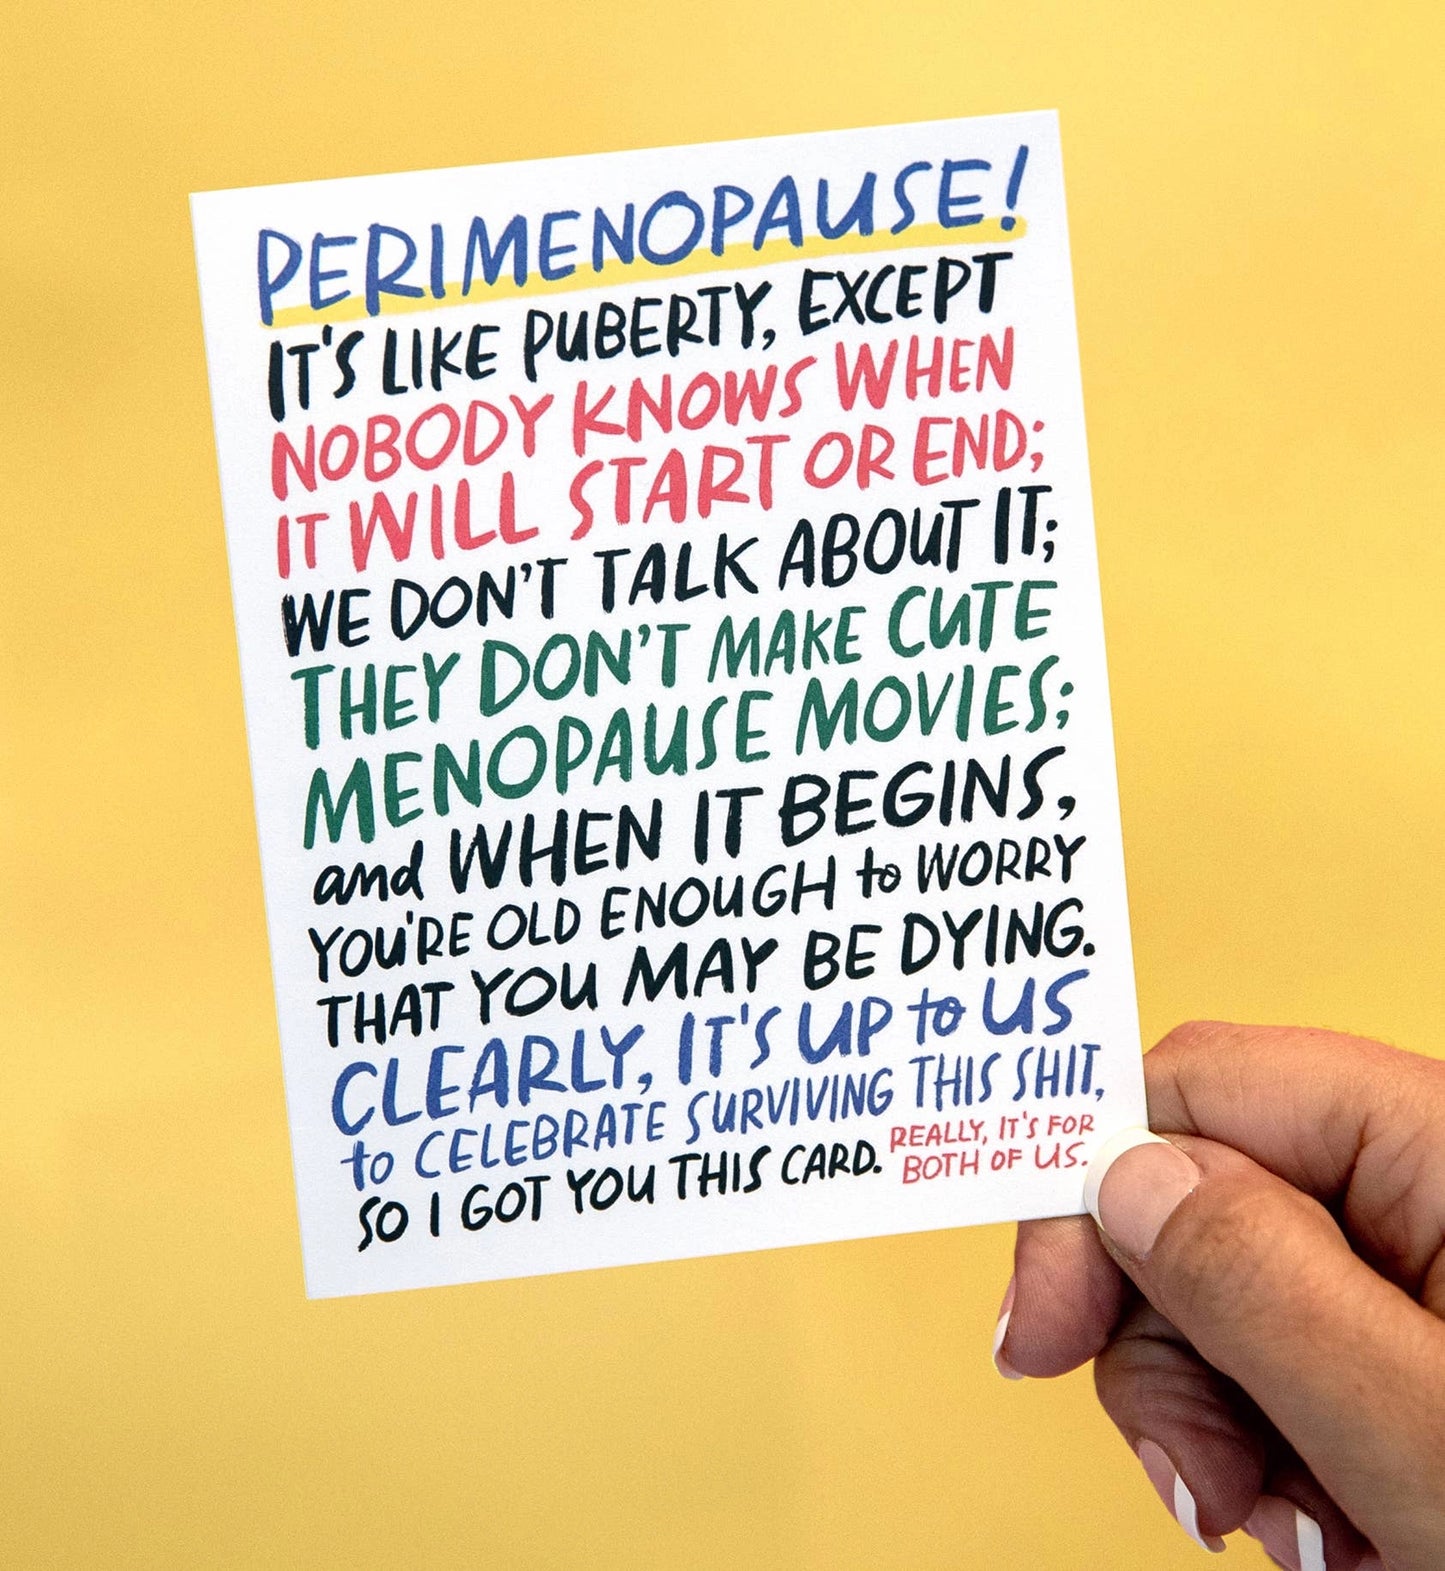 PERIMENOPAUSE!
IT'S LIKE PUBERTY, EXCEPT
NOBODY KNOWS WHEN
IT WILL START OR END;
WE DON'T TALK ABOUT IT;
THEY DON'T MAKE CUTE
MENOPAUSE MOVIES;
and WHEN IT BEGINS,
YOU'RE OLD ENOUGH to WORRY
THAT YOU MAY BE DYING.
CLEARLY, IT'S UP to US
to CELEBRATE SURVIVING THIS SHIT,
SO I GOT YOU THIS CARD.
REALLY, IT'S FOR
BOTH OF US.